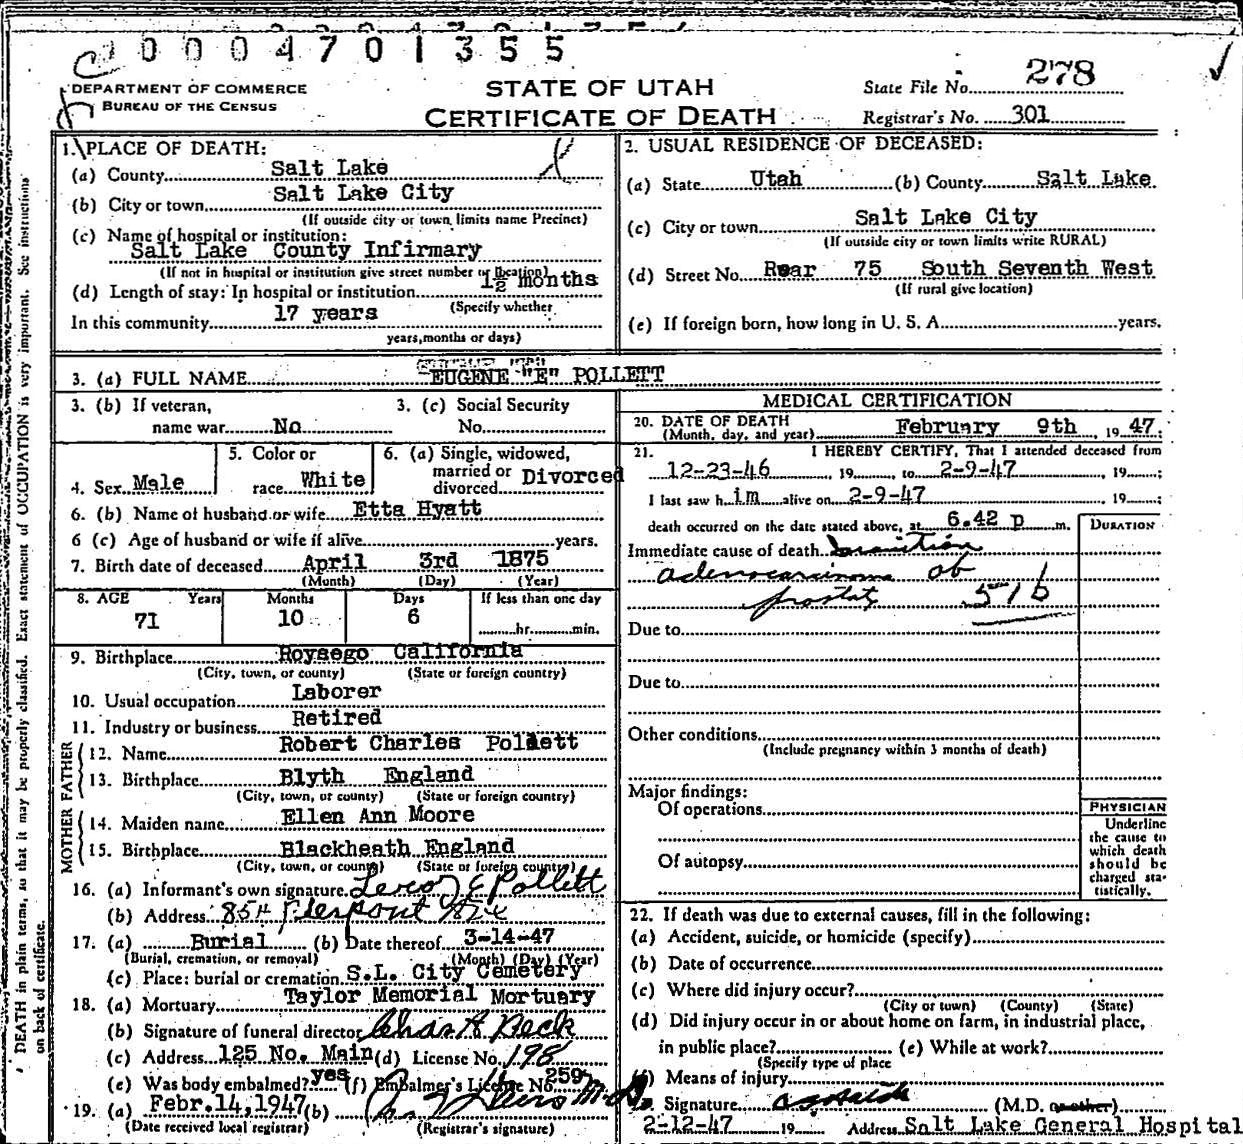 0 0 0 4 7 0 1 3 5 5
DEPARTMENT OF COMMERCE
BUREAU OF THE CENSUS
STATE OF UTAH
CERTIFICATE OF DEATH
State File No. 278
Registrar's No. 301
1. PLACE OF DEATH:
(a) County Salt Lake
(b) City or town Salt Lake City
(If outside city or town limits name Precinct)
(c) Name of hospital or institution:
Salt Lake County Infirmary
(If not in hospital or institution give street number or location)
(d) Length of stay: In hospital or institution 1½ months
(Specify whether
In this community 17 years
years, months or days)
2. USUAL RESIDENCE OF DECEASED:
(a) State Utah (b) County Salt Lake
(c) City or town Salt Lake City
(If outside city or town limits write RURAL)
(d) Street No. Rear 75 South Seventh West
(If rural give location)
(e) If foreign born, how long in U. S. A. years.
3. (a) FULL NAME EUGENE "E" POLLETT
3. (b) If veteran,
name war No
3. (c) Social Security
No.
4. Sex Male
5. Color or
race White
6. (a) Single, widowed,
married or
divorced Divorced
6. (b) Name of husband or wife Etta Hyatt
6 (c) Age of husband or wife if alive years.
7. Birth date of deceased April 3rd 1875
(Month) (Day) (Year)
8. AGE Years Months Days If less than one day
71 10 6 hr. min.
9. Birthplace Roysego California
(City, town, or county) (State or foreign country)
10. Usual occupation Laborer
11. Industry or business Retired
FATHER
12. Name Robert Charles Pollett
13. Birthplace Blyth England
(City, town, or county) (State or foreign country)
MOTHER
14. Maiden name Ellen Ann Moore
15. Birthplace Blackheath England
(City, town, or county) (State or foreign country)
16. (a) Informant's own signature Leroy E Pollett
(b) Address 854 Pierpont Ave
17. (a) Burial (b) Date thereof 3-14-47
(Burial, cremation, or removal) (Month) (Day) (Year)
(c) Place: burial or cremation S.L. City Cemetery
18. (a) Mortuary Taylor Memorial Mortuary
(b) Signature of funeral director Chas A Peck
(c) Address 125 No. Main (d) License No. 198
(e) Was body embalmed? yes (f) Embalmer's License No. 259
19. (a) Febr. 14, 1947 (b) M.D.
(Date received local registrar) (Registrar's signature)
MEDICAL CERTIFICATION
20. DATE OF DEATH
(Month, day, and year) February 9th, 1947
21. I HEREBY CERTIFY, That I attended deceased from
12-23-46, 19 to 2-9-47, 19 ;
I last saw him alive on 2-9-47, 19 ;
death occurred on the date stated above, at 6.42 p m.
DURATION
Immediate cause of death Inanition
adenocarcinoma of
prostate 51b
Due to
Due to
Other conditions
(Include pregnancy within 3 months of death)
Major findings:
Of operations
Of autopsy
PHYSICIAN
Underline
the cause to
which death
should be
charged sta-
tistically.
22. If death was due to external causes, fill in the following:
(a) Accident, suicide, or homicide (specify)
(b) Date of occurrence
(c) Where did injury occur?
(City or town) (County) (State)
(d) Did injury occur in or about home on farm, in industrial place,
in public place? (e) While at work?
(Specify type of place
(f) Means of injury
Signature (M.D. or other)
2-12-47 19 Address Salt Lake General Hospital
DEATH in plain terms, so that it may be properly classified. Exact statement of OCCUPATION is very important. See instructions
on back of certificate.